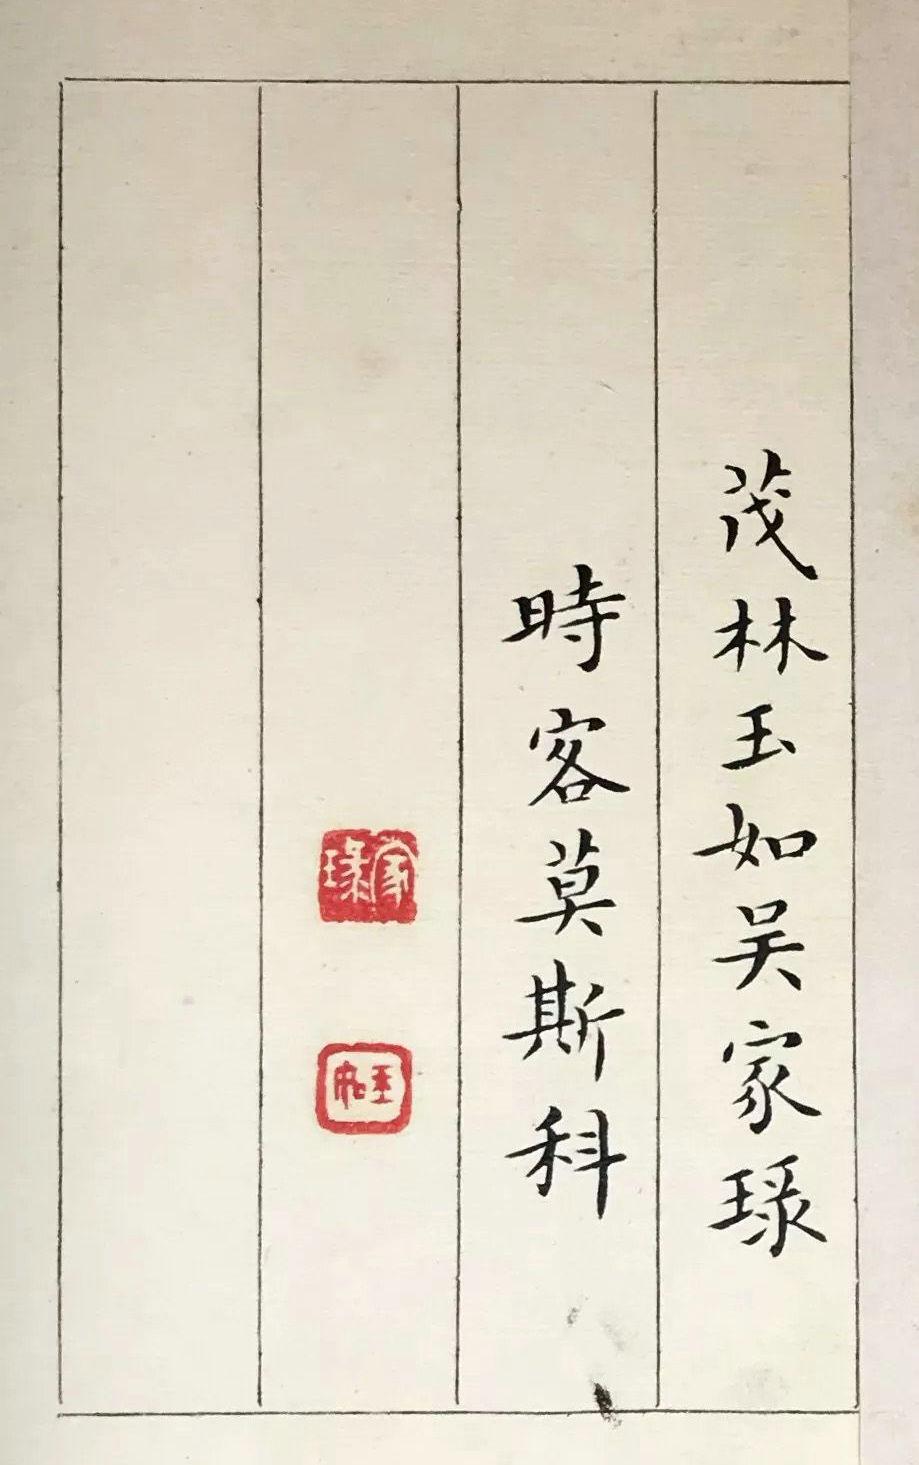 茂林玉如吴家琭
時客莫斯科
家琭
玉如